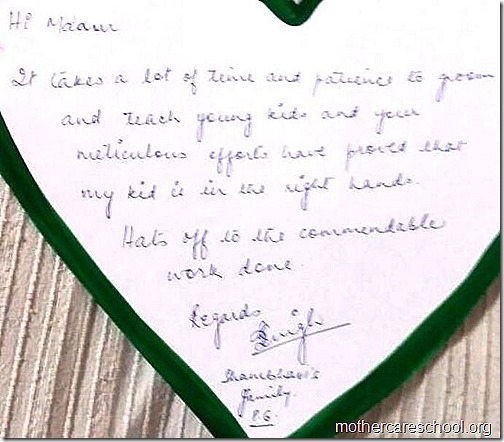 Hi Ma'am
It takes a lot of time and patience to groom
and teach young kids and your
meticulous efforts have proved that
my kid is in the right hands.
Hats off to the commendable
work done.
Regards
Singh
Shambhavi's
family.
P.G.
mothercareschool.org